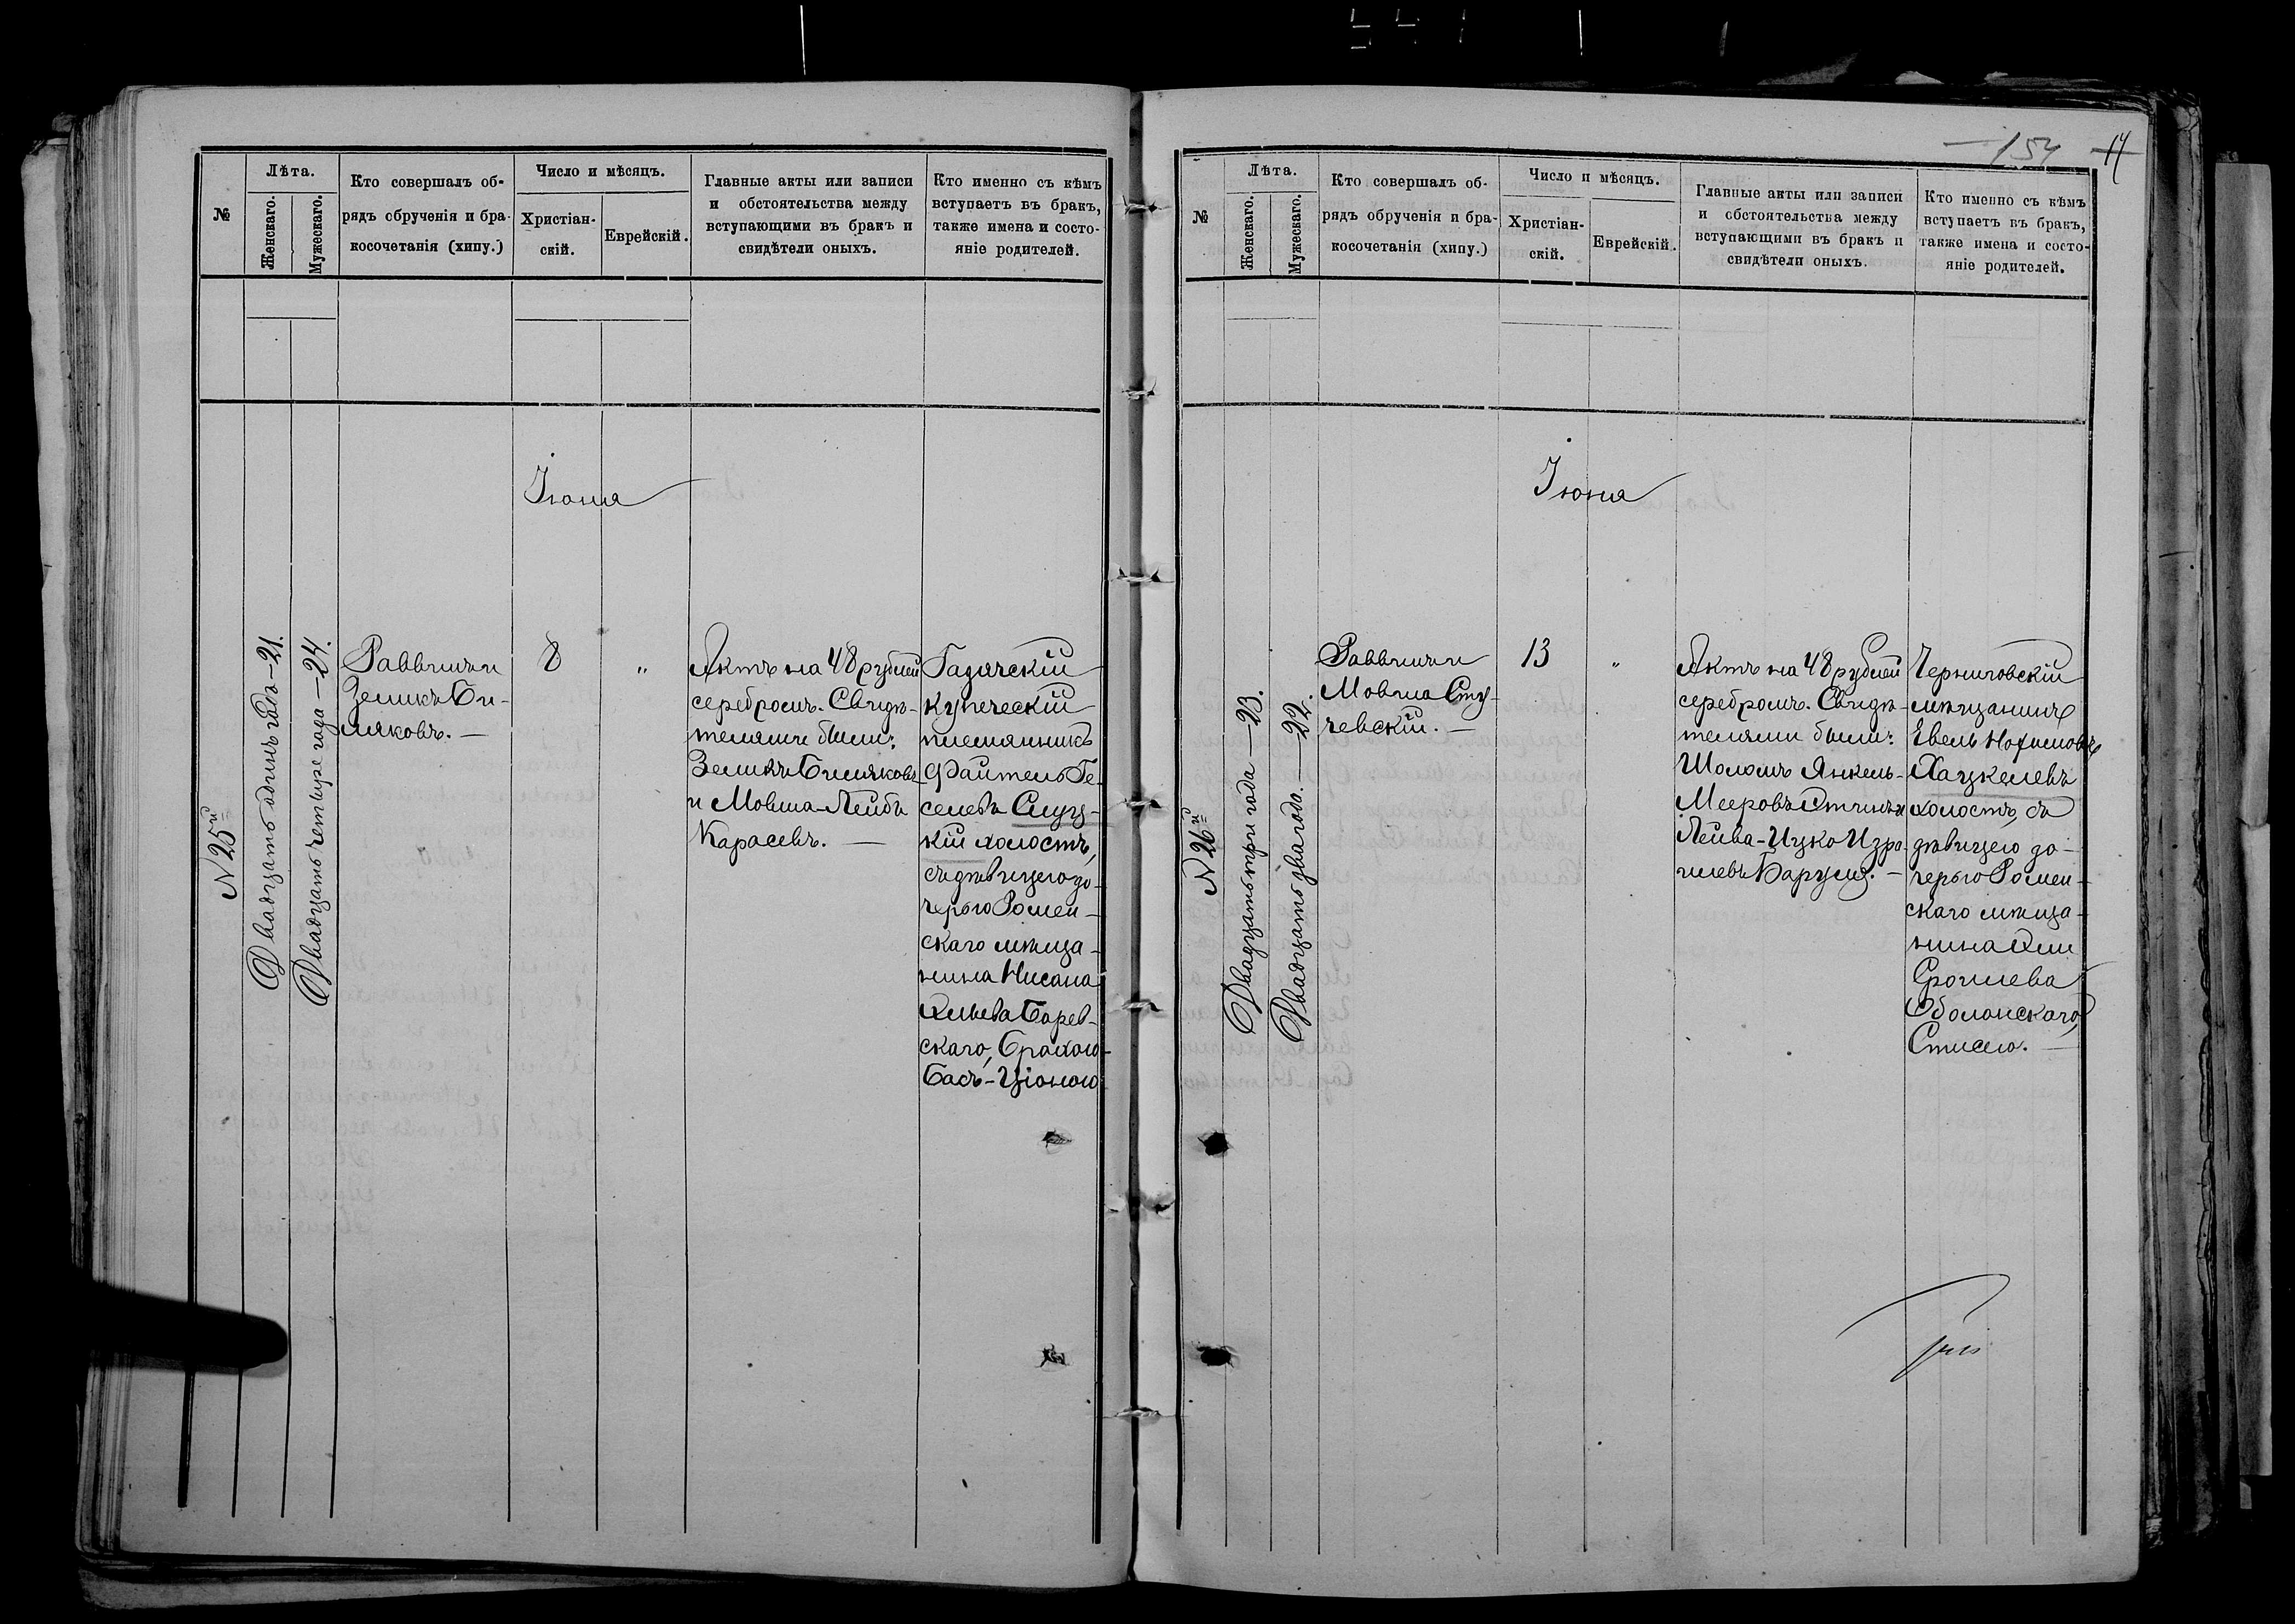 №
Лѣта.
Женскаго.
Мужескаго.
Кто совершалъ об-
рядъ обрученія и бра-
косочетанія (хипу.)
Число и мѣсяцъ.
Христіан-
скій.
Еврейскій.
Главные акты или записи
и обстоятельства между
вступающими въ бракъ и
свидѣтели оныхъ.
Кто именно съ кѣмъ
вступаетъ въ бракъ,
также имена и состо-
яніе родителей.
Іюня
N 25й
Двадцать одинъ годъ — 21.
Двадцать четыре года — 24.
Раввинъ и
Зеликъ Би-
ляковъ. —
8
"
Актъ на 48 рублей
серебромъ. Свидѣ-
телями были:
Зеликъ Биляковъ
и Мовша-Лейбъ
Карасевъ. —
Гадячскій
купеческій
племянникъ
Файтель Ге-
селевъ Слуц-
кій холостъ,
съ дѣвицею до-
черью Ромен-
скаго мѣща-
нина Нисана
Хилева Борев-
скаго, Брохою
Бась-Ціоною
154 14
№
Лѣта.
Женскаго.
Мужескаго.
Кто совершалъ об-
рядъ обрученія и бра-
косочетанія (хипу.)
Число и мѣсяцъ.
Христіан-
скій.
Еврейскій.
Главные акты или записи
и обстоятельства между
вступающими въ бракъ и
свидѣтели оныхъ.
Кто именно съ кѣмъ
вступаетъ въ бракъ,
также имена и состо-
яніе родителей.
Іюня
N 26й
Двадцать три года — 23.
Двадцать два года. — 22.
Раввинъ и
Мовша Сту-
чевскій. —
13
"
Актъ на 48 рублей
серебромъ. Свидѣ-
телями были:
Шоломъ Янкель-
Мееровъ и
Лейва-Ицко Изра-
илевъ —
Черниговскій
мѣщанинъ
Евель Нохимовъ
Хацкелевъ
холостъ, съ
дѣвицею до-
черью Ромен-
скаго мѣща-
нина
Сроилева
Оболонскаго,
Стисею. —